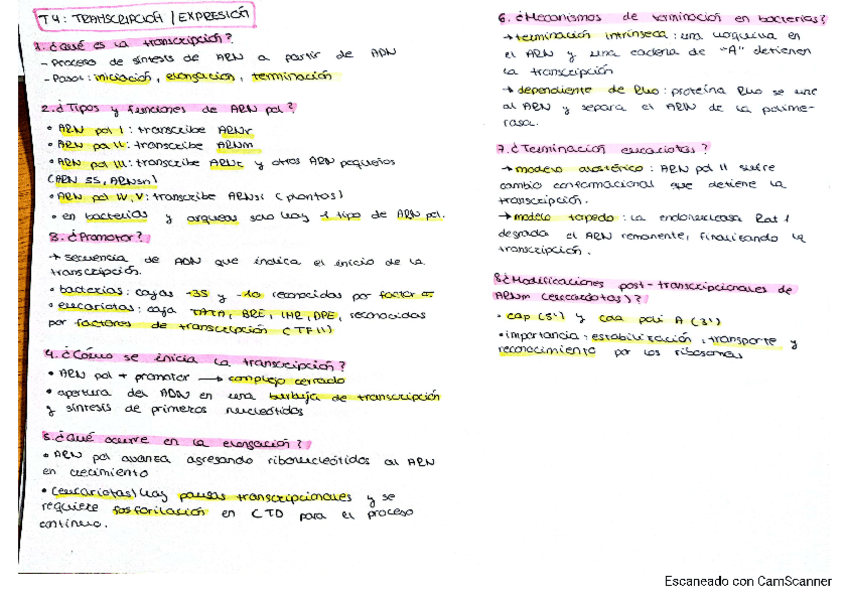 T4: TRANSCRIPCIÓN / EXPRESIÓN
1. ¿Qué es la transcripción?
- Proceso de síntesis de ARN a partir de ADN
- Pasos: iniciación, elongación, terminación
2. ¿Tipos y funciones de ARN pol?
• ARN pol I: transcribe ARNr
• ARN pol II: transcribe ARNm
• ARN pol III: transcribe ARNt y otros ARN pequeños
(ARN 5S, ARNsn)
• ARN pol IV, V: transcribe ARNsi (plantas)
• en bacterias y arqueas solo hay 1 tipo de ARN pol.
3. ¿Promotor?
→ secuencia de ADN que indica el inicio de la
transcripción.
• bacterias: cajas -35 y -10 reconocidas por factor σ
• eucariotas: caja TATA, BRE, INR, DPE, reconocidas
por factores de transcripción (TFII)
4. ¿Cómo se inicia la transcripción?
• ARN pol + promotor → complejo cerrado
• apertura del ADN en una burbuja de transcripción
y síntesis de primeros nucleótidos
5. ¿Qué ocurre en la elongación?
• ARN pol avanza agregando ribonucleótidos al ARN
en crecimiento
• (eucariotas) hay pausas transcripcionales y se
requiere fosforilación en CTD para el proceso
continuo.
6. ¿Mecanismos de terminación en bacterias?
→ terminación intrínseca: una horquilla en
el ARN y una cadena de "A" detienen
la transcripción
→ dependiente de Rho: proteína Rho se une
al ARN y separa el ARN de la polime-
rasa.
7. ¿Terminación eucariotas?
→ modelo alostérico: ARN pol II sufre
cambio conformacional que detiene la
transcripción.
→ modelo torpedo: la endonucleasa Rat 1
degrada el ARN remanente, finalizando la
transcripción.
8. ¿Modificaciones post-transcripcionales de
ARNm (eucariotas)?
• cap (5') y cola poli A (3')
• importancia: estabilización, transporte y
reconocimiento por los ribosomas
Escaneado con CamScanner